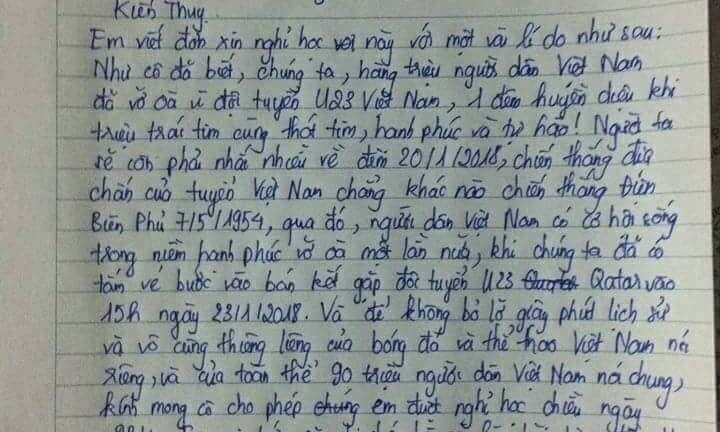 Kiến Thuỵ.
Em viết đơn xin nghỉ học này với một vài lí do như sau:
Như cô đã biết, chúng ta, hàng triệu người dân Việt Nam
đã vỡ oà vì đội tuyển U23 Việt Nam, 1 đêm huyền diệu khi
triệu trái tim cùng thót tim, hạnh phúc và tự hào! Người ta
sẽ còn phải nhắc nhiều về đêm 20/1/2018, chiến thắng địa
chấn của tuyển Việt Nam chẳng khác nào chiến thắng Điện
Biên Phủ 7/5/1954, qua đó, người dân Việt Nam có cơ hội sống
trong niềm hạnh phúc vỡ oà một lần nữa, khi chúng ta đã có
tấm vé bước vào bán kết gặp đội tuyển U23 Qatar vào
15h ngày 23/1/2018. Và để không bỏ lỡ giây phút lịch sử
và vô cùng thiêng liêng của bóng đá và thể thao Việt Nam nói
riêng, và của toàn thể 90 triệu người dân Việt Nam nói chung,
kính mong cô cho phép em được nghỉ học chiều ngày